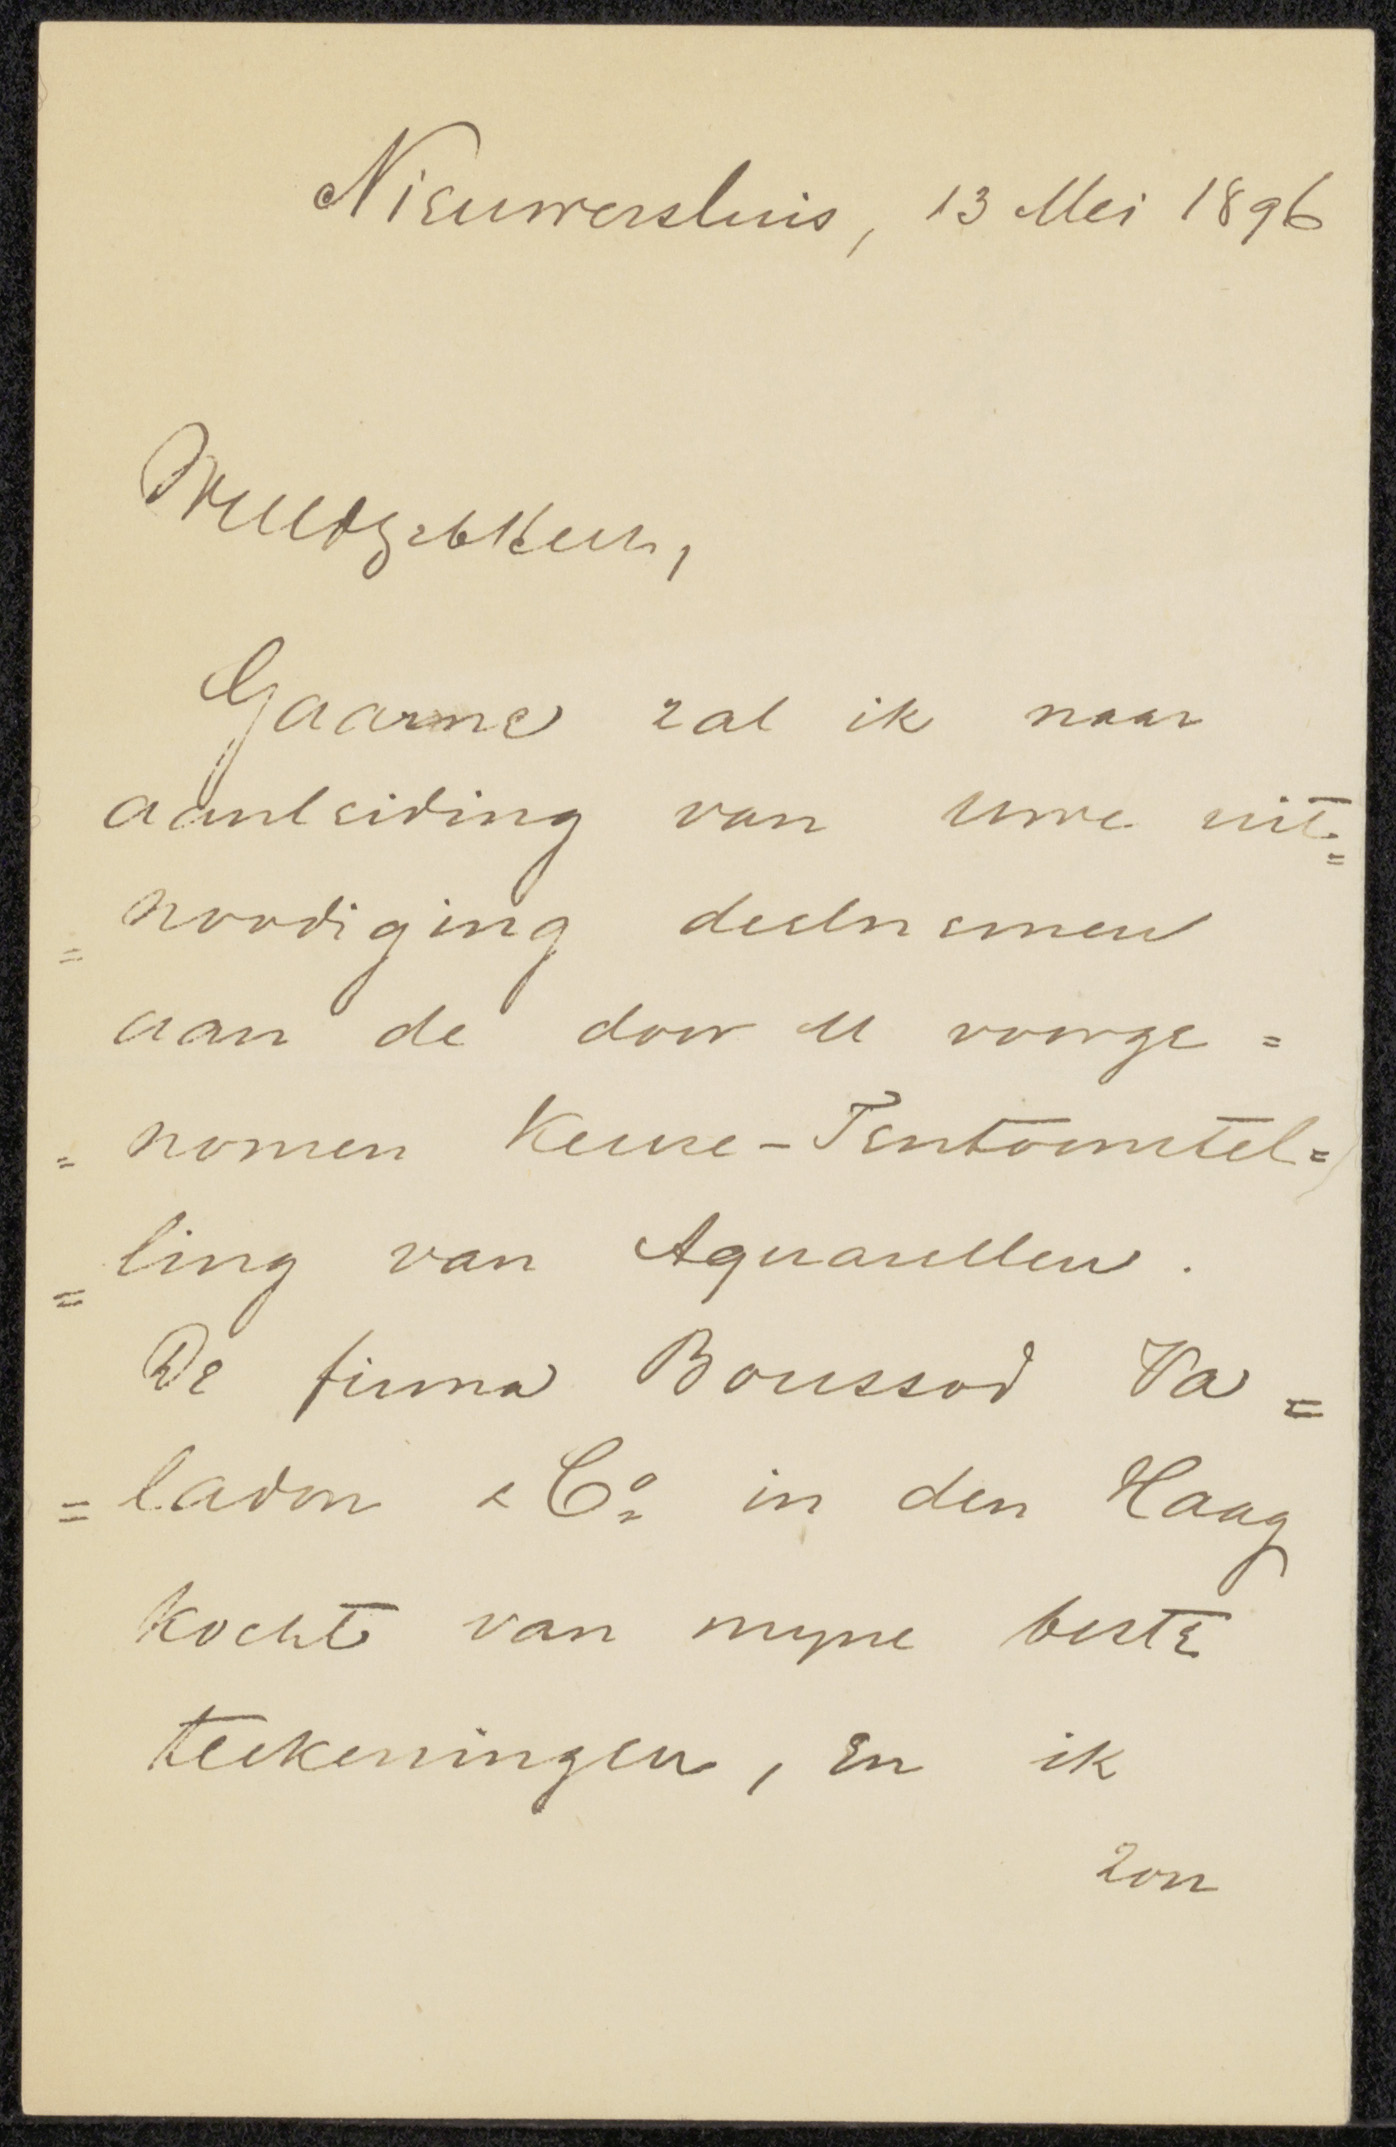 Nieuwersluis, 13 Mei 1896
WelEdgeb Heer,
Gaarne zal ik naar
aanleiding van Uwe uit=
=noodiging deelnemen
aan de door U voorge=
=nomen Keuze-Tentoonstel=
=ling van Aquarellen.
De firma Boussod Va=
=ladon & Co. in den Haag
kocht van myne beste
teekeningen, en ik
zou